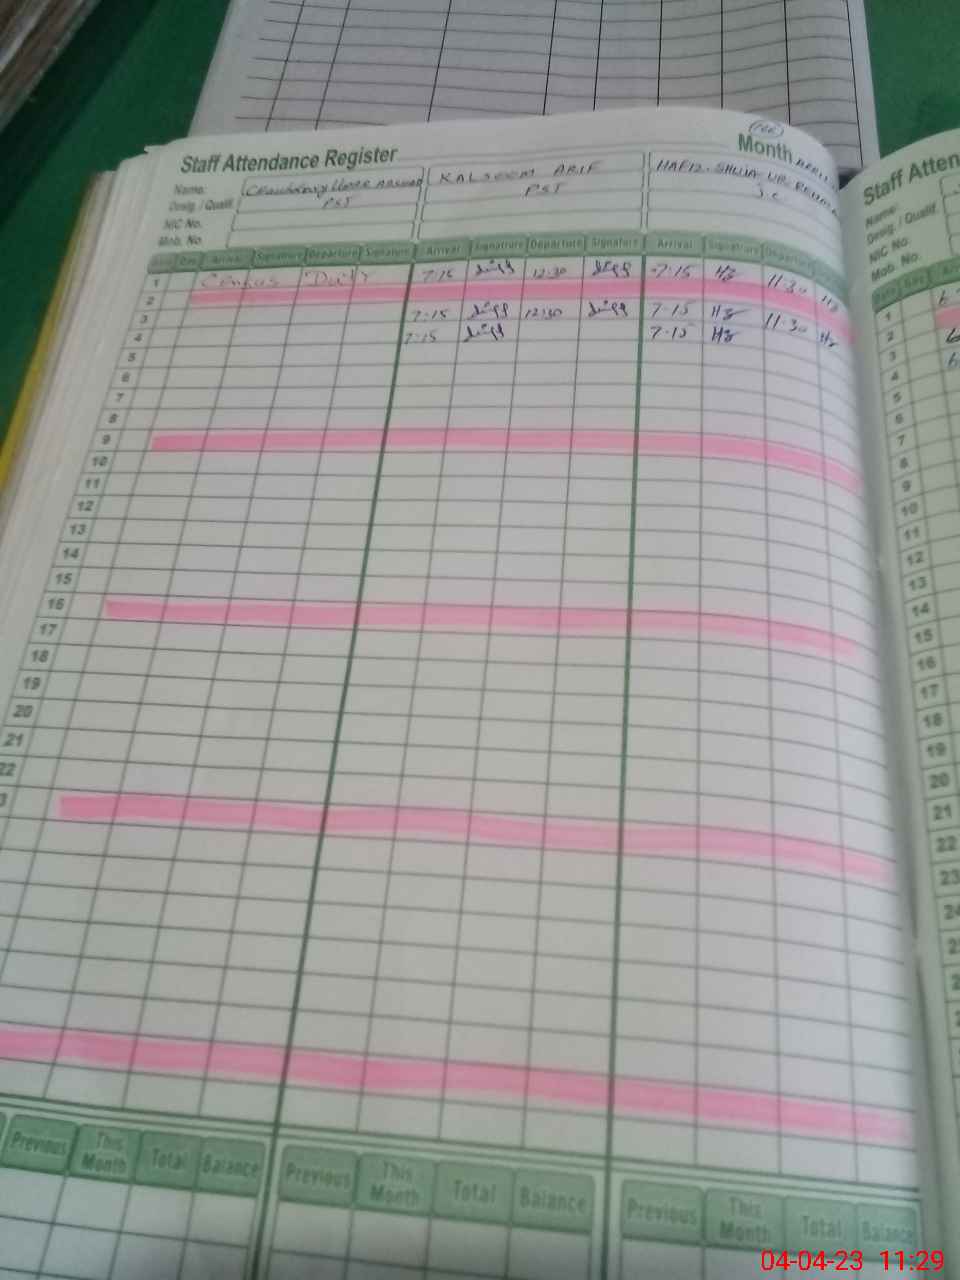 166
Staff Attendance Register Month APRIL
Name: UMER ARSHAD KALSOOM ARIF HAFIZ. SHUJA-UR-REHMAN
Desig. / Qualif. PST PST J.C.
NIC No.
Mob. No.
Day Arrival Signature Departure Signature Arrival Signature Departure Signature Arrival Signature Departure
1 Census Duty 7:15 12:30 7-15 Hz 11:30 Hz
2
3 7:15 12:30 7-15 Hz 11:30 Hz
4 7:15 7-15 Hz
5
6
7
8
9
10
11
12
13
14
15
16
17
18
19
20
21
22
Previous This Month Total Balance Previous This Month Total Balance Previous This Month Total Balance
Staff Atten
Name:
Desig. / Qualif.
NIC No.
Mob. No.
1
2
3
4
5
6
7
8
9
10
11
12
13
14
15
16
17
18
19
20
21
22
23
04-04-23 11:29